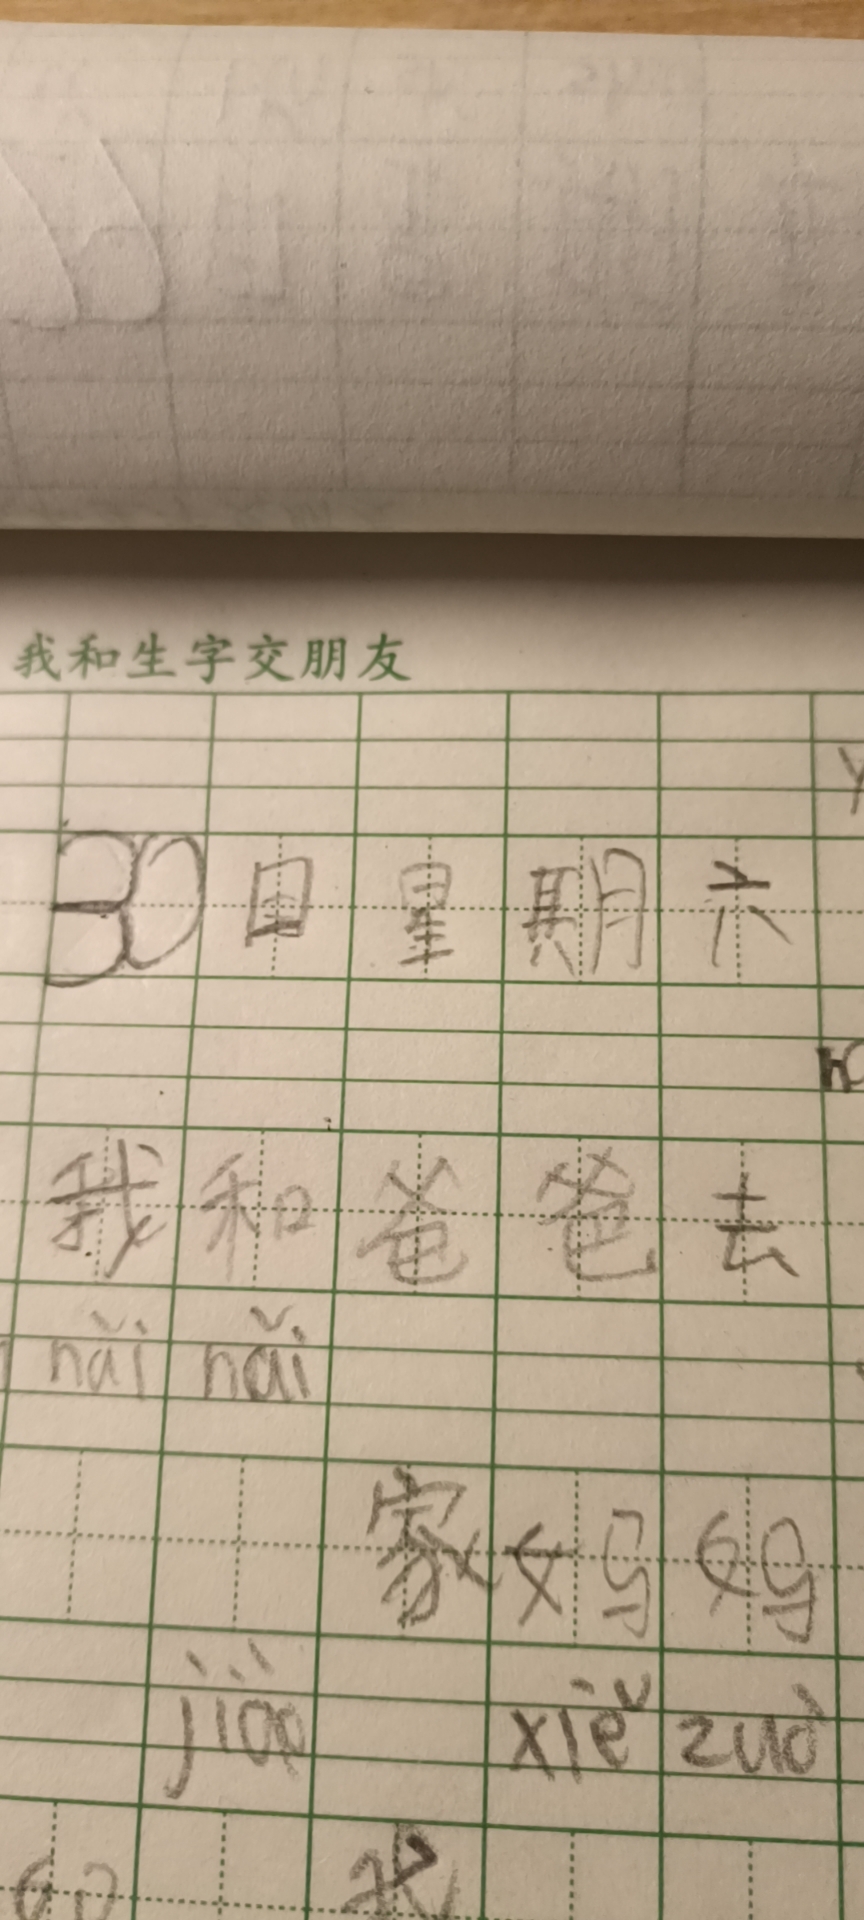 我和生字交朋友
30日星期六
我和爸爸去
nǎi nǎi
家妈妈
jiāo xiě zuò
我